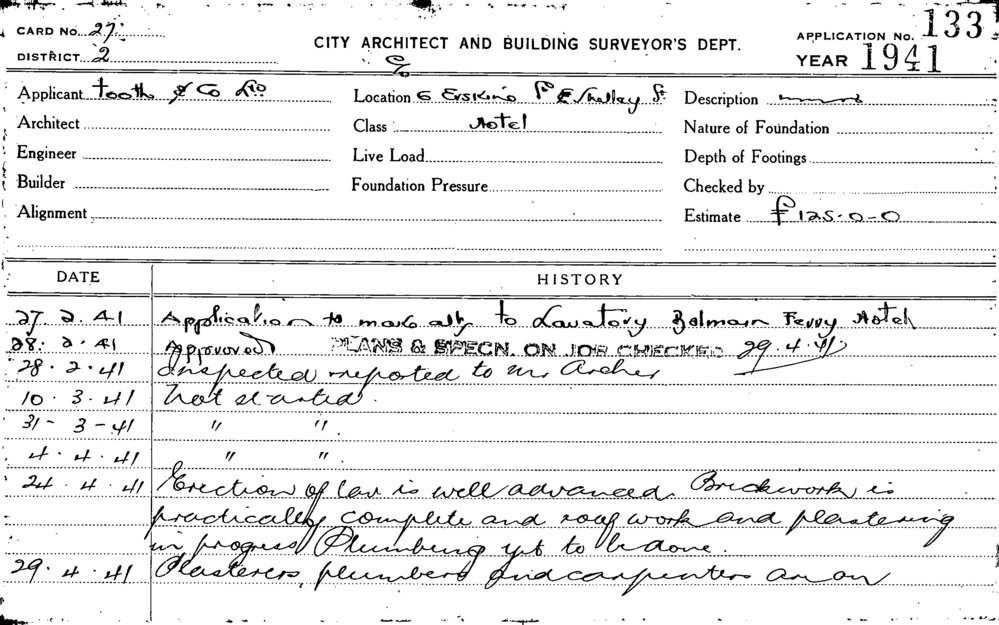 CARD No. 27.
DISTRICT. 2
CITY ARCHITECT AND BUILDING SURVEYOR'S DEPT.
APPLICATION No. 133
YEAR 1941
Applicant Tooth & Co Ltd
Location Erskine St & Shelley St
Description
Architect
Class Hotel
Nature of Foundation
Engineer
Live Load
Depth of Footings
Builder
Foundation Pressure
Checked by
Alignment
Estimate £125-0-0
DATE
HISTORY
27. 2. 41 Application to make alts to Lavatory Balmain Ferry Hotel
28. 2. 41 Approved PLANS & SPECN. ON JOB CHECKED 29.4.41
28. 2. 41 Inspected reported to Mr Archer
10. 3. 41 Not started.
31- 3-41 " ".
4. 4. 41 " ".
24. 4. 41 Erection of lav is well advanced. Brickwork is
practically complete and roof work and plastering
in progress Plumbing yet to be done.
29. 4. 41 Plasterers, plumbers and carpenters are on